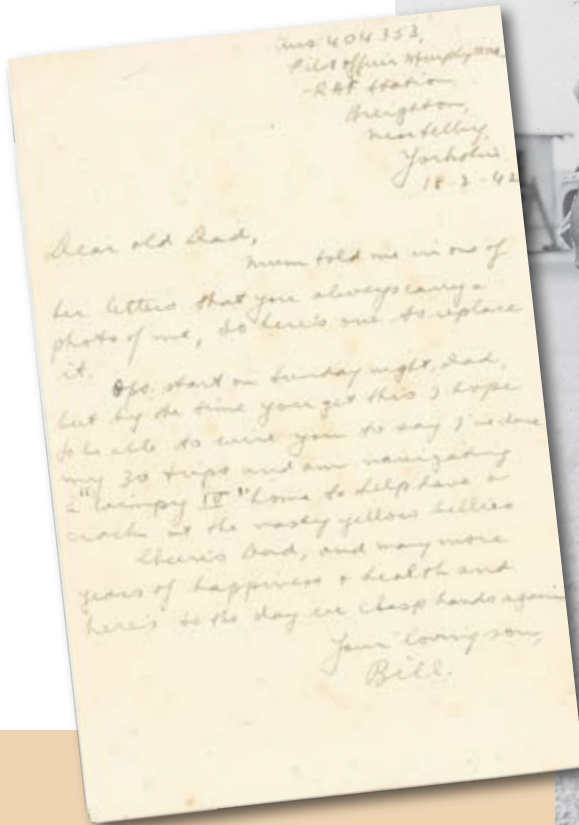 Aus. 404353,
Pilot Officer Murphy
RAF Station
Breighton,
near Selby,
Yorkshire.
18-2-42
Dear old Dad,
Mum told me in one of
her letters that you always carry a
photo of me, so here's one to replace
it.
Ops. start on Sunday night, Dad,
but by the time you get this I hope
to be able to wire you to say I've done
my 30 trips and am navigating
a "Wimpy IV" home to help have a
crack at the nasty yellow bellies
Cheerio Dad, and many more
years of happiness & health and
here's to the day we clasp hands again
Your loving son,
Bill.